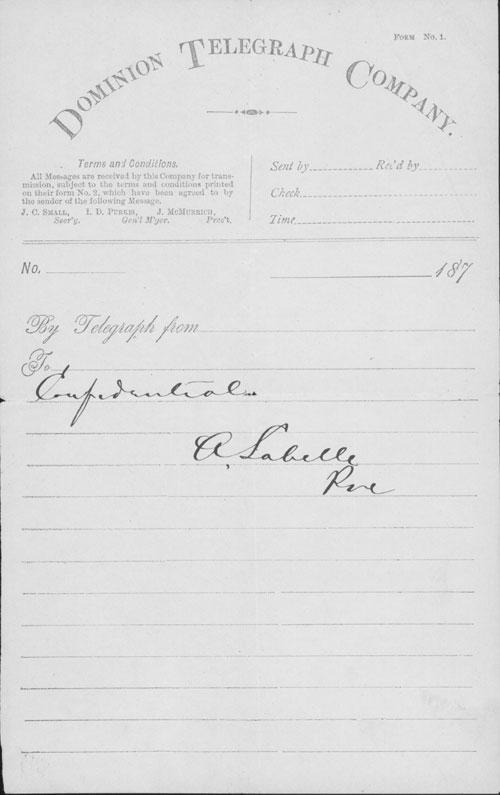 FORM No. 1.
DOMINION TELEGRAPH COMPANY.
Terms and Conditions.
All Messages are received by this Company for trans-
mission, subject to the terms and conditions printed
on their form No. 2, which have been agreed to by
the sender of the following Message.
J. C. SMALL, I. D. PURKIS, J. McMURRICH,
Secr'y. Gen'l M'ger. Pres't.
Sent by Rec'd by
Check
Time
No. 187
By Telegraph from
To
Confidential
A. Labelle